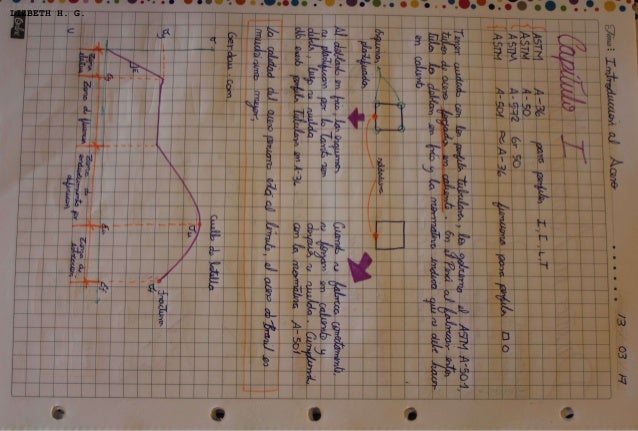 LIZBETH H. G.
Tema: Introducción al Acero
13 03 19
Capítulo I
ASTM A-36 para perfiles I, I, L, T
ASTM A-50
ASTM A-572 Gr 50
ASTM A-501 ≈ A-36 funciona para perfiles □ O
Tener cuidado con los perfiles tubulares, los gobierna el ASTM A-501,
tubos de acero forjados en caliente. En el Perú al fabricar estos
tubos los doblan en frío y la normativa indica que se debe hacer
en caliente.
Esquinas
plastificadas
soldadura
Al doblado en frío las esquinas
se plastifican por lo tanto son
débiles, luego se suelda
de esos perfiles tubulares en A-36
Cuando se fabrica correctamente,
se forjan en caliente y
después se suelda. Cumpliendo
con la normativa A-501
La calidad del acero peruano está al límite, el acero de Brasil es
muchísimo mejor.
Gerdau.com
Cuello de botella
Fractura
Zona de fluencia
Zona de
endurecimiento por
deformación
Zona de